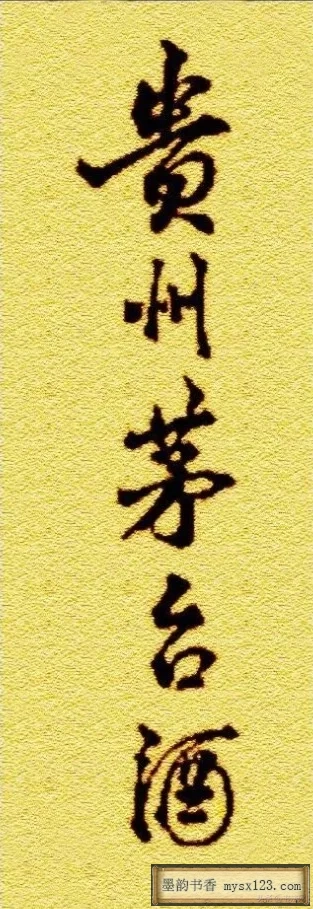 貴州茅台酒
墨韵书香 mysx123.com